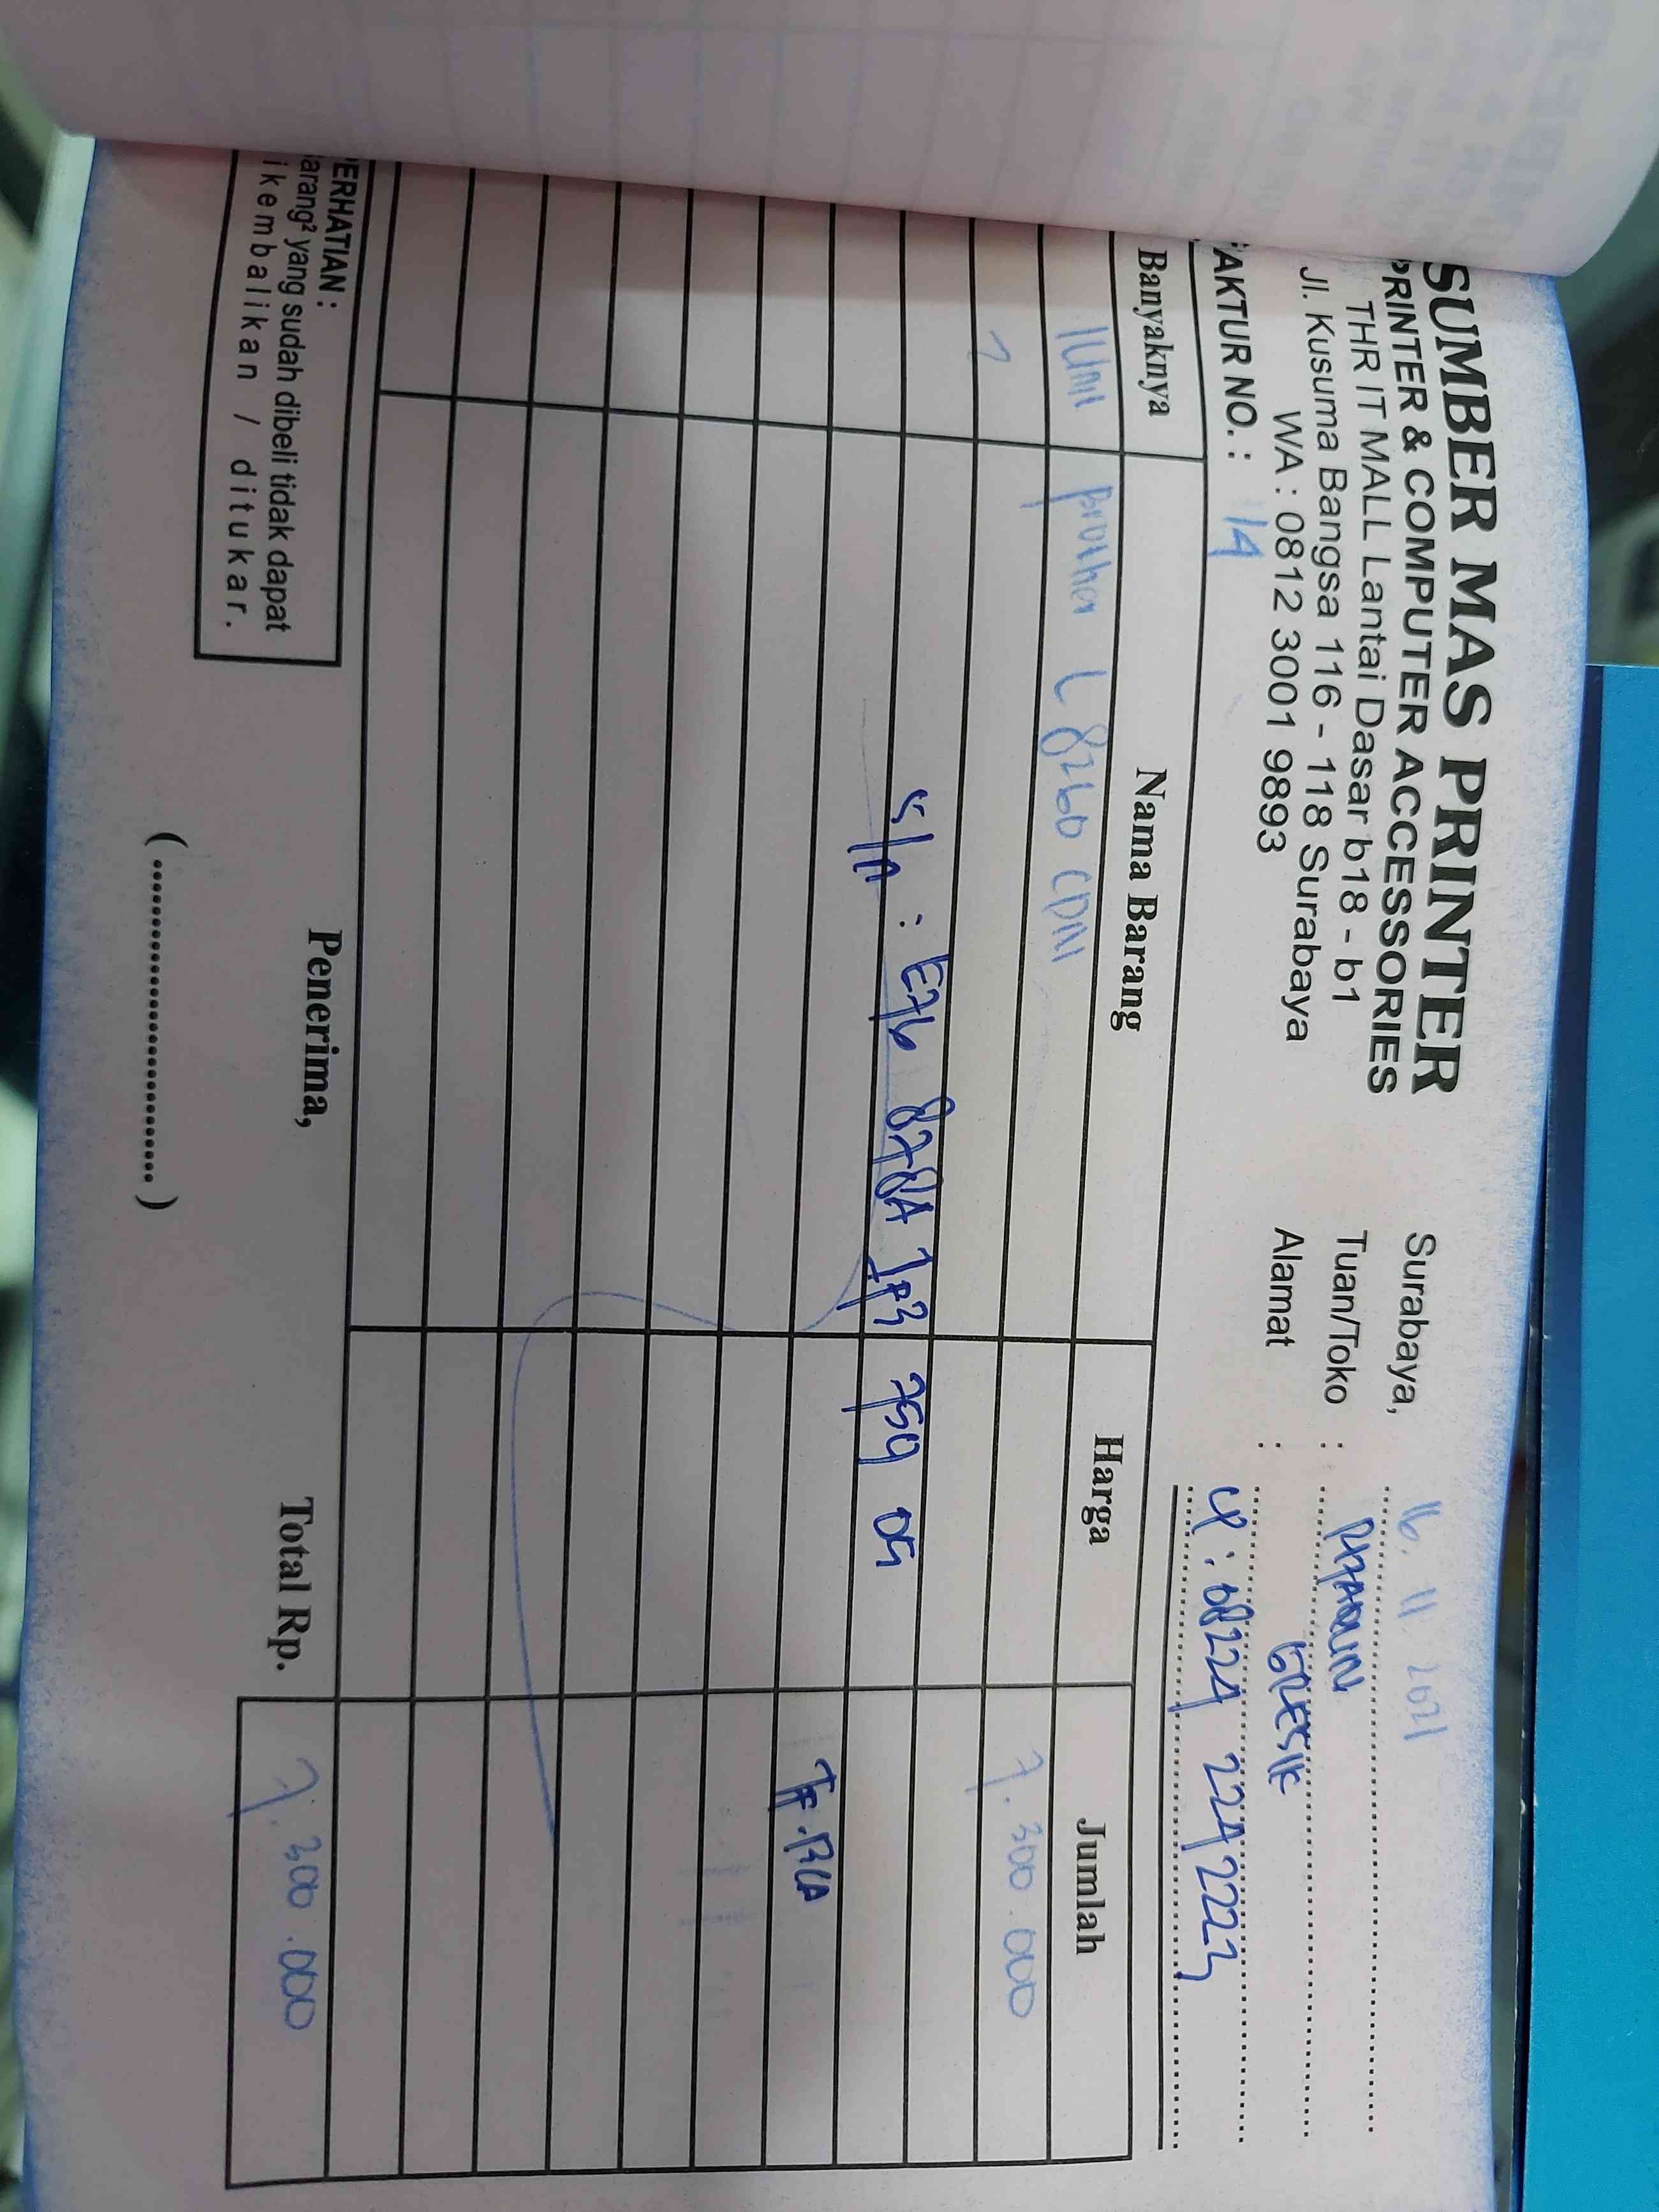 SUMBER MAS PRINTER
PRINTER & COMPUTER ACCESSORIES
THR IT MALL Lantai Dasar b18 - b1
Jl. Kusuma Bangsa 116 - 118 Surabaya
WA : 0812 3001 9893
Surabaya, 16. 11 2021
Tuan/Toko :
Alamat : GRESIK
CP : 08224 224 2223
FAKTUR NO. : 14
Banyaknya Nama Barang Harga Jumlah
1 Unit Brother L 8260 CDN
7.300.000
S/N :
TF. BCA
PERHATIAN :
arang² yang sudah dibeli tidak dapat
ikembalikan / ditukar.
Penerima,
(........................)
Total Rp. 7.300.000